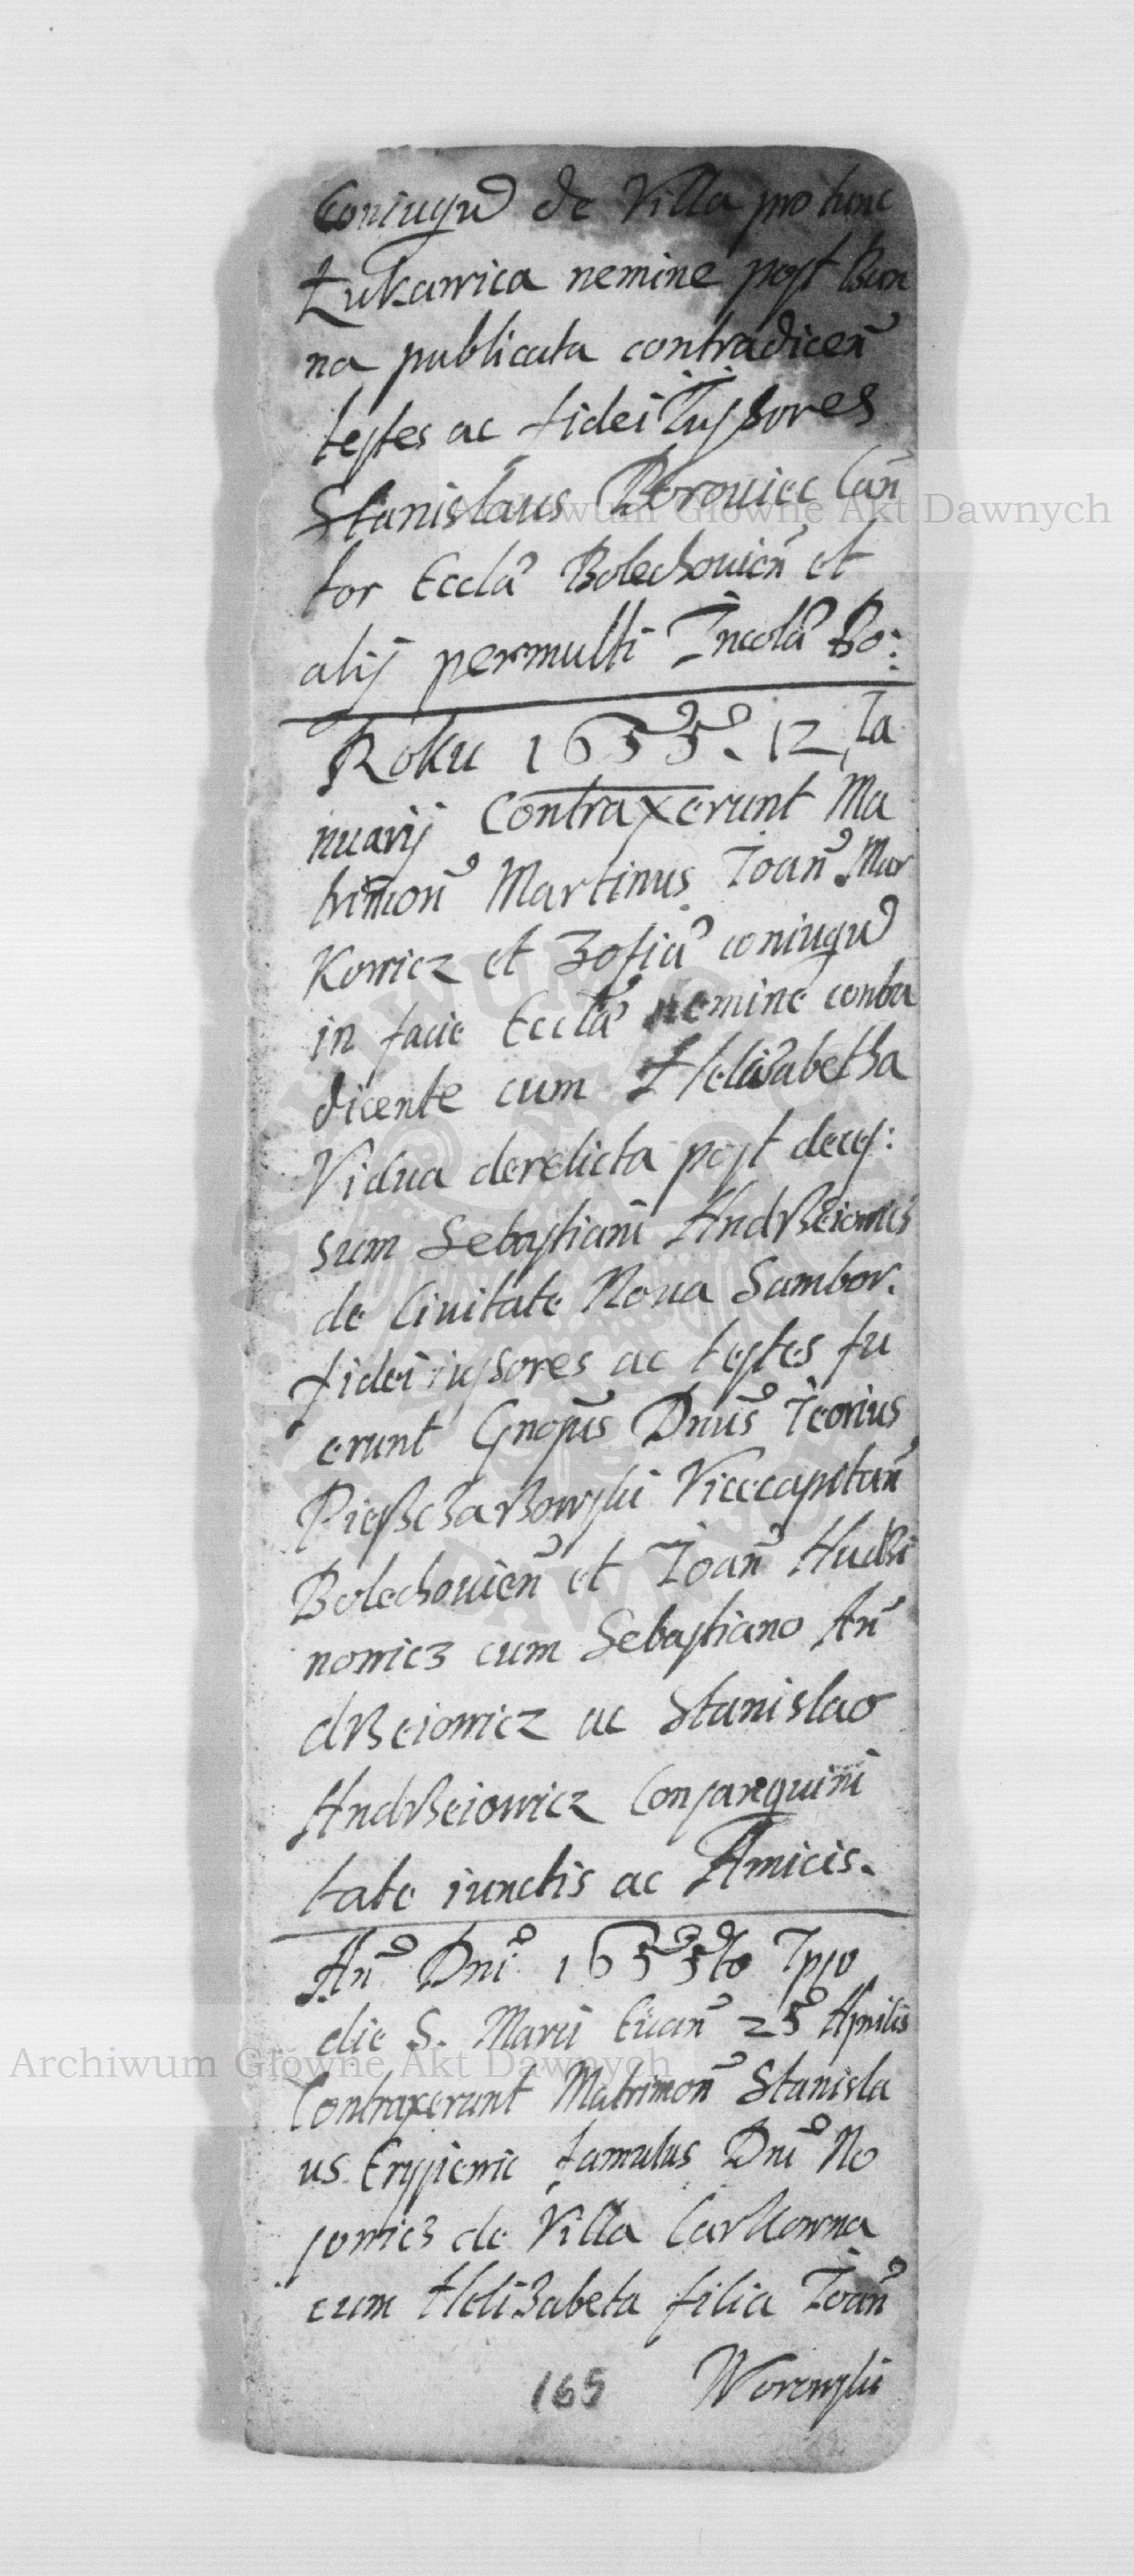 Coniugũ de Villa pro tunc
Łukawica nemine post Ban
na publicata contradiceñ
testes ac fidei Iussores
Stanislaus Borowiec Cañ
tor Eccla Bolechowieñ et
alij permulti Incola Bo:
Roku 1655. 12 Ia
nuarij Contraxerunt Ma
trimoñ Martinus Ioañ Mar
kowicz et Zofia coniugũ
in facie Eccla nemine contra
dicente cum Helisabetha
Vidua derelicta post deces:
sum Sebastiani Andrzeiowicz
de Ciuitate Noua Sambor.
fidei iussores ac testes fu
erunt Gnosus Dnus Ieorius
Pieszczarzowski Vicecapitañ
Bolechouieñ et Ioañ Hudzi
nowicz cum Sebastiano Añ
drzeiowicz ac Stanislao
Andrzeiowicz Consanguini
tate iunctis ac Amicis.
Añ Dni 1655to Ipso
die S. Marci Euañ 25 Aprilis
Contraxerunt Matrimoñ Stanisla
us famulus Dni No
sowicz de Villa Carkowna
cum Helizabeta filia Ioañ
165 Worenski
Archiwum Główne Akt Dawnych
Archiwum Główne Akt Dawnych